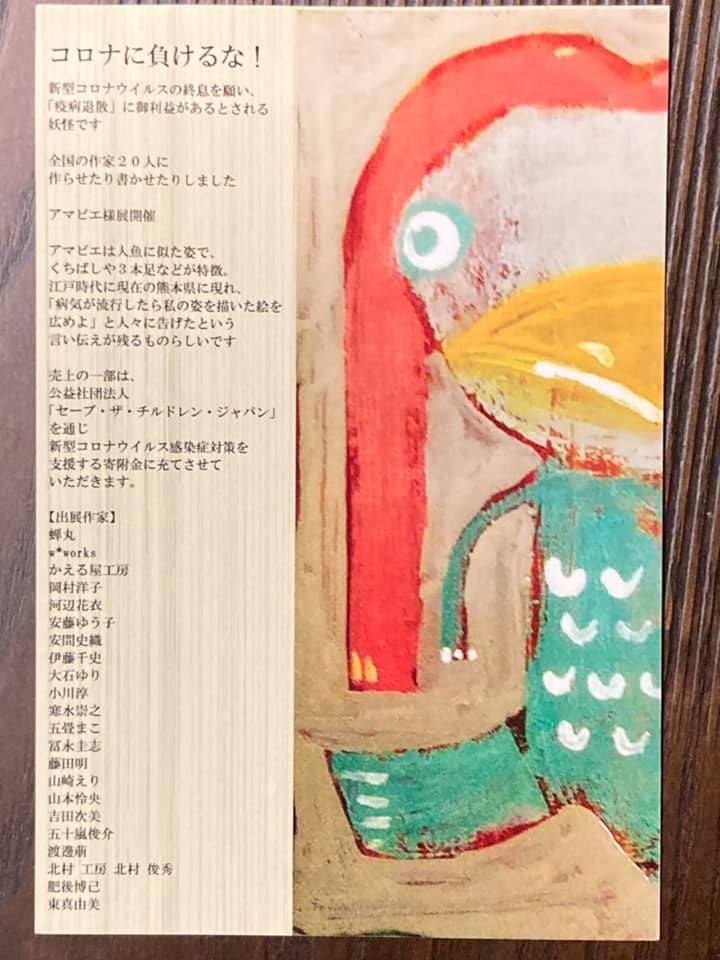 コロナに負けるな！
新型コロナウイルスの終息を願い、
「疫病退散」に御利益があるとされる
妖怪です
全国の作家２０人に
作らせたり書かせたりしました
アマビエ様展開催
アマビエは人魚に似た姿で、
くちばしや３本足などが特徴。
江戸時代に現在の熊本県に現れ、
「病気が流行したら私の姿を描いた絵を
広めよ」と人々に告げたという
言い伝えが残るものらしいです
売上の一部は、
公益社団法人
「セーブ・ザ・チルドレン・ジャパン」
を通じ
新型コロナウイルス感染症対策を
支援する寄附金に充てさせて
いただきます。
【出展作家】
蝉丸
w*works
かえる屋工房
岡村洋子
河辺花衣
安藤ゆう子
安間史織
伊藤千史
大石ゆり
小川淳
寒水崇之
五畳まこ
冨永圭志
藤田明
山崎えり
山本怜央
吉田次美
五十嵐俊介
渡邊萌
北村 工房 北村 俊秀
肥後博己
東真由美